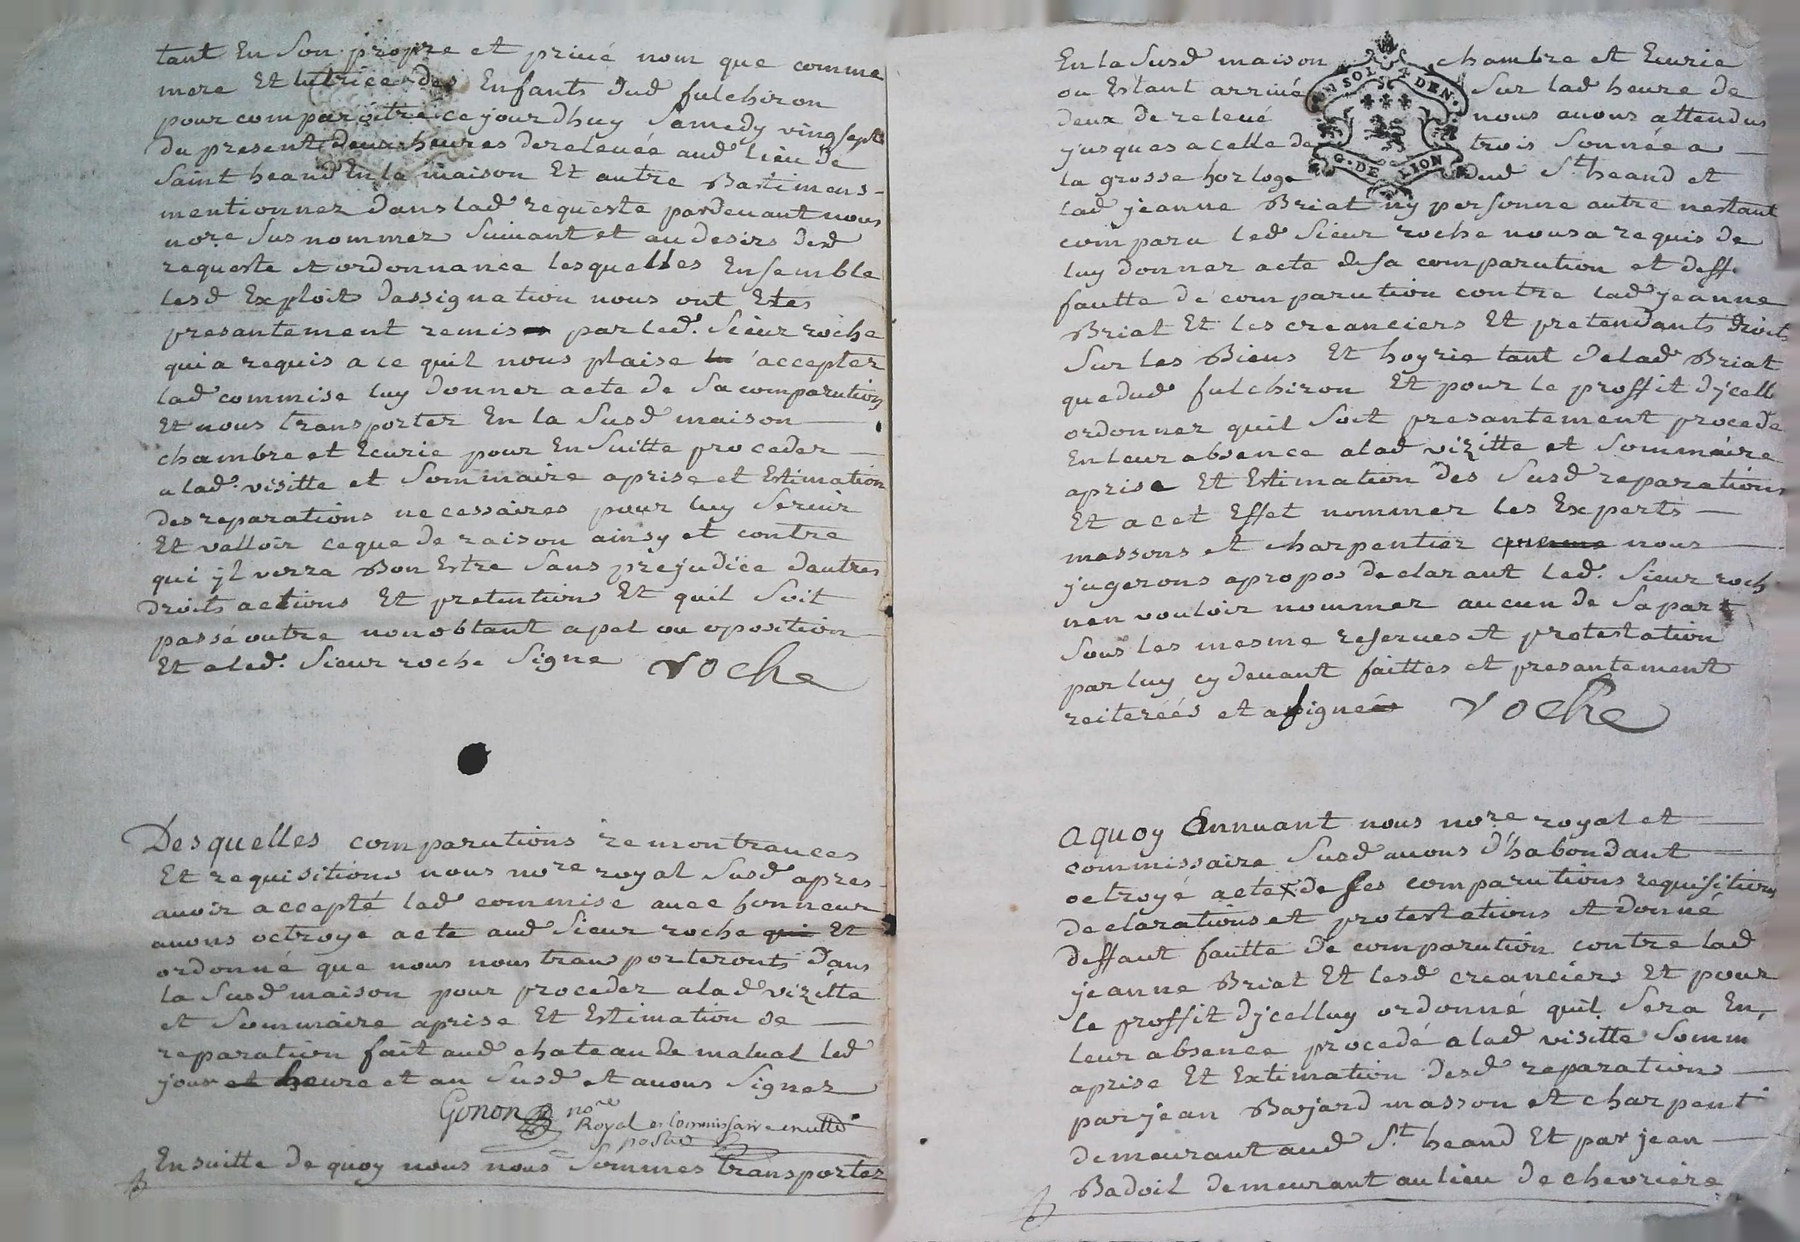 tant En Son propre et privé nom que comme
mere Et tutrice des Enfants dud fulchiron
pour comparoitre ce jourdhuy Samedy vingsept
du present deux heures de relevée aud lieu de
Saint heand En la maison Et autre Batimens
mentionnez dans lad requeste pardevant nous
nore Susnommez Suivant et au desirs desd
requeste et ordonnance lesquelles Ensemble
lesd Exploits dassignation nous ont Etes
presantement remis par led. Sieur roche
qui a requis a ce quil nous plaise accepter
lad commise luy donner acte de Sa comparution
Et nous transporter En la Susd maison
chambre et Ecurie pour En Suitte proceder
a lad. visitte et Sommaire aprise et Estimation
des reparations necessaires pour luy Servir
Et valloir ce que de raison ainsy et contre
qui jl verra Bon Estre Sans prejudice dautres
droits actions Et pretentions Et quil Soit
passé outre nonobtant apel ou oposition
Et a led. Sieur roche Signe roche
Desquelles comparutions remontrances
Et requisitions nous nore royal Susd apres
avoir accepté lad commise avec honneur
avons octroye acte aud Sieur roche qui Et
ordonné que nous nous transporteronts dans
la Susd maison pour proceder a lad vizitte
et Sommaire aprise Et Estimation de
reparation fait aud chateau de malval led
jour et heure et an Susd et avons Signez
Gonon nore
Royal et Commissaire en cette
partie
En suitte de quoy nous nous Sommes transportez
En la Susd maison chambre et Ecurie
ou Estant arrivé Sur lad heure de
deux de relevé nous avons attendus
jusques a celle de trois Sonnée a
la grosse horloge dud St. heand et
lad jeanne Briat ny personne autre nestant
comparu led Sieur roche nous a requis de
luy donner acte de sa comparution et deff
fautte de comparution contre lad jeanne
Briat Et les creanciers Et pretendants droits
Sur les Biens Et hoyrie tant de lad Briat
que dud fulchiron Et pour le proffit djcell
ordonner quil Soit presantement procede
En leur absence a lad vizitte et Sommaire
aprise Et Estimation des Susd reparations
Et a cet Effet nommer les Experts
massons et charpentier nous
jugerons apropos declarant led. Sieur roch
nen vouloir nommer aucun de Sa part
Sous les mesme reserves et protestation
par luy cy devant faittes et presantement
reiterées et a signé roche
A quoy Annuant nous nore royal et
commissaire Susd avons d'habondant
octroyé acte de ses comparutions requisitions
declarations et protestations et donné
deffaut fautte de comparution contre lad
jeanne Briat Et lesd creanciers Et pour
le proffit djcelluy ordonné quil Sera En
leur absence procedé a lad visitte Somm
aprise Et Extimation desd reparations
par jean Bajard masson et charpenti
demeurant aud St. heand Et par jean
Badoil demeurant au lieu de chevriere
SOL DEN.
G. DE LION